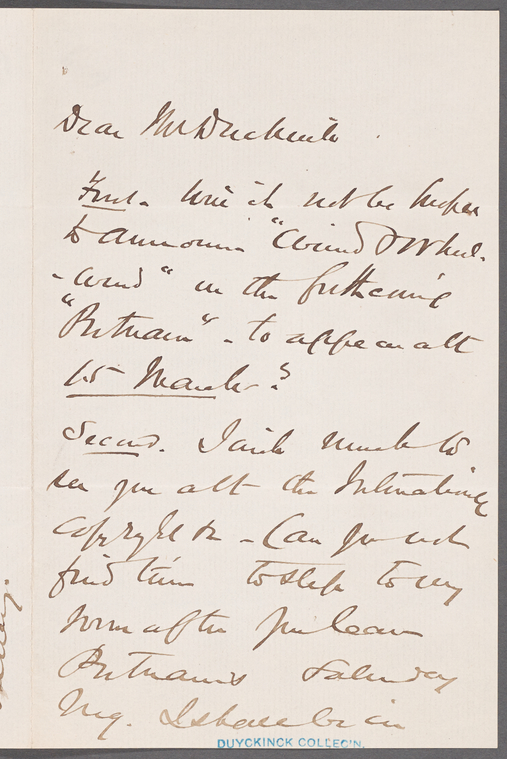 Dear Mr Duyckinck
First. Will it not be proper
to announce "Wind & Whirl-
-wind" in the forthcoming
"Putnam" - to appear abt
15 March?
Second. I wish much to
see you abt the International
Copyright - Can you not
find time to step to my
room after you leave
Putnams Saturday
Mg. I shall be in
DUYCKINCK COLLEC'N.